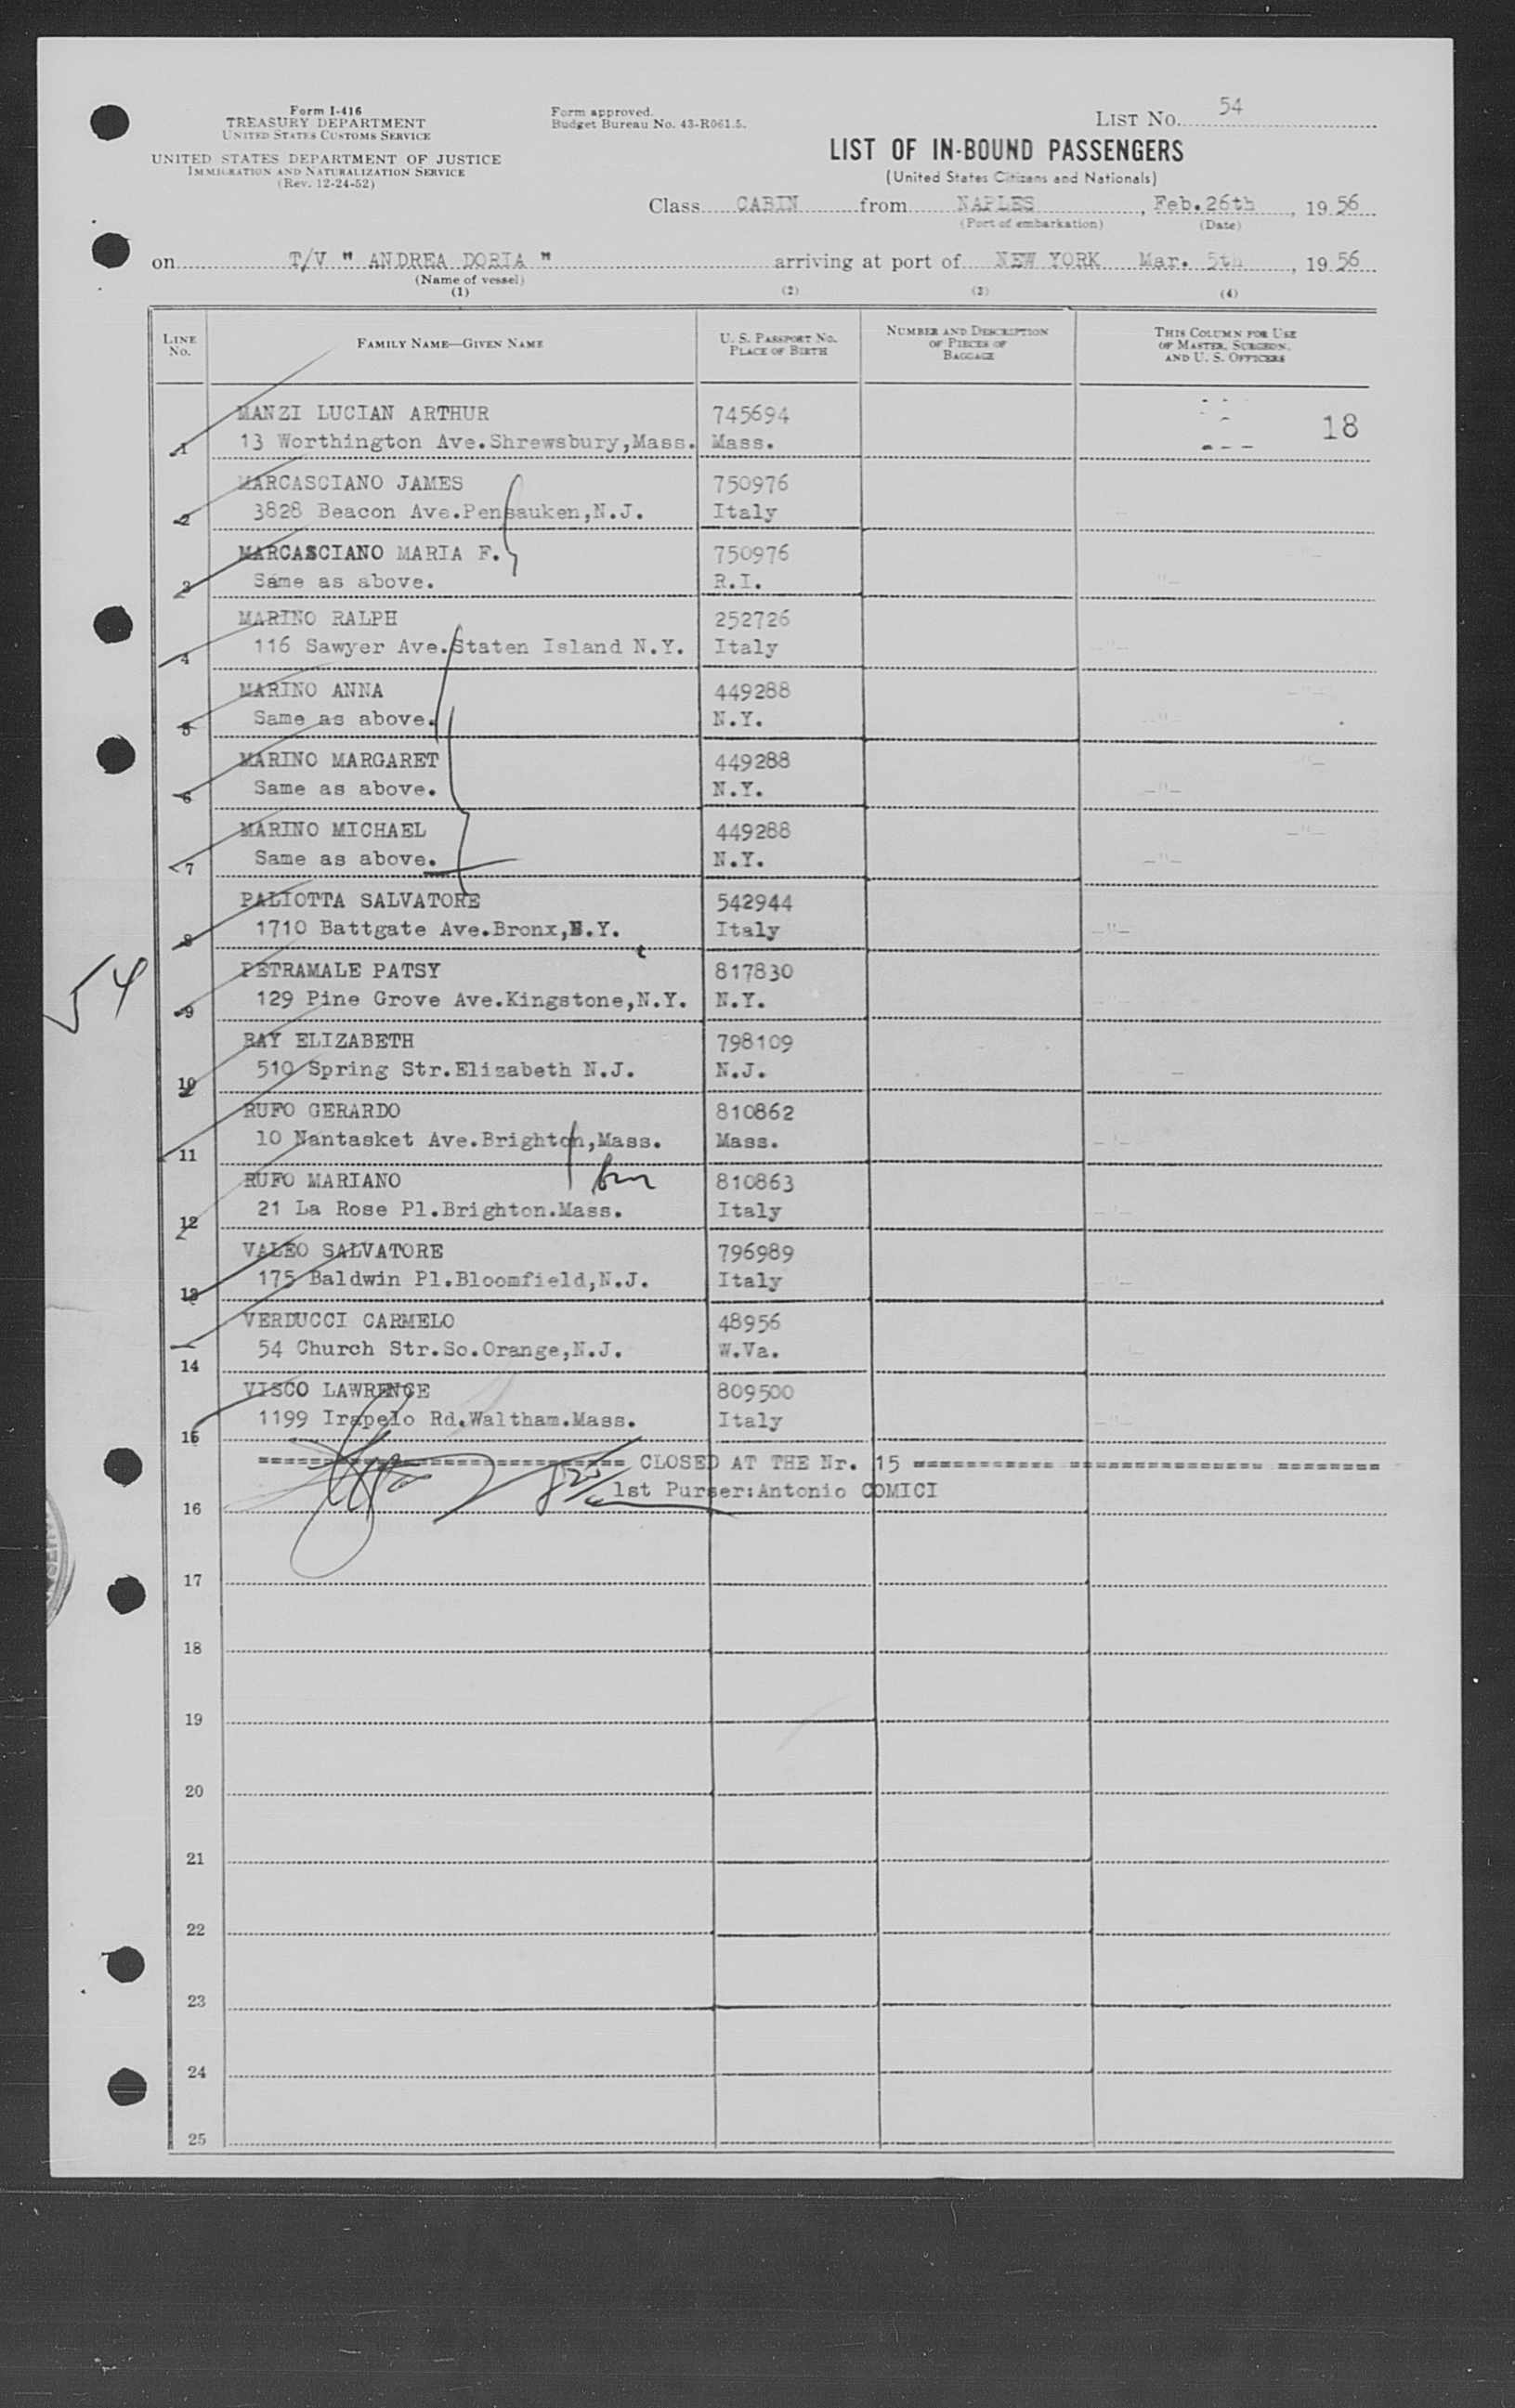 Form I-416
TREASURY DEPARTMENT
UNITED STATES CUSTOMS SERVICE
UNITED STATES DEPARTMENT OF JUSTICE
IMMIGRATION AND NATURALIZATION SERVICE
(Rev. 12-24-52)
Form approved.
Budget Bureau No. 43-R061.5.
LIST NO. 54
LIST OF IN-BOUND PASSENGERS
(United States Citizens and Nationals)
Class CABIN from NAPLES, Feb.26th, 1956
(Port of embarkation) (Date)
on T/V " ANDREA DORIA " arriving at port of NEW YORK Mar. 5th, 1956
(Name of vessel)
(1) (2) (3) (4)
LINE NO. FAMILY NAME—GIVEN NAME U. S. PASSPORT NO. PLACE OF BIRTH NUMBER AND DESCRIPTION OF PIECES OF BAGGAGE THIS COLUMN FOR USE OF MASTER, SURGEON, AND U. S. OFFICERS
MANZI LUCIAN ARTHUR 745694
1 13 Worthington Ave.Shrewsbury,Mass. Mass. 18
MARCASCIANO JAMES 750976
2 3828 Beacon Ave.Pensauken,N.J. Italy
MARCASCIANO MARIA F. 750976
3 Same as above. R.I.
MARINO RALPH 252726
4 116 Sawyer Ave.Staten Island N.Y. Italy
MARINO ANNA 449288
5 Same as above. N.Y.
MARINO MARGARET 449288
6 Same as above. N.Y.
MARINO MICHAEL 449288
7 Same as above. N.Y.
PALIOTTA SALVATORE 542944
8 1710 Battgate Ave.Bronx,N.Y. Italy
54
PETRAMALE PATSY 817830
9 129 Pine Grove Ave.Kingstone,N.Y. N.Y.
RAY ELIZABETH 798109
10 510 Spring Str.Elisabeth N.J. N.J.
RUFO GERARDO 810862
11 10 Nantasket Ave.Brighton,Mass. Mass.
RUFO MARIANO 810863
12 21 La Rose Pl.Brighton.Mass. Italy
VALEO SALVATORE 796989
13 175 Baldwin Pl.Bloomfield,N.J. Italy
VERDUCCI CARMELO 48956
14 54 Church Str.So.Orange,N.J. W.Va.
VISCO LAWRENCE 809500
15 1199 Irapelo Rd.Waltham.Mass. Italy
CLOSED AT THE Nr. 15
1st Purser:Antonio COMICI
16
17
18
19
20
21
22
23
24
25